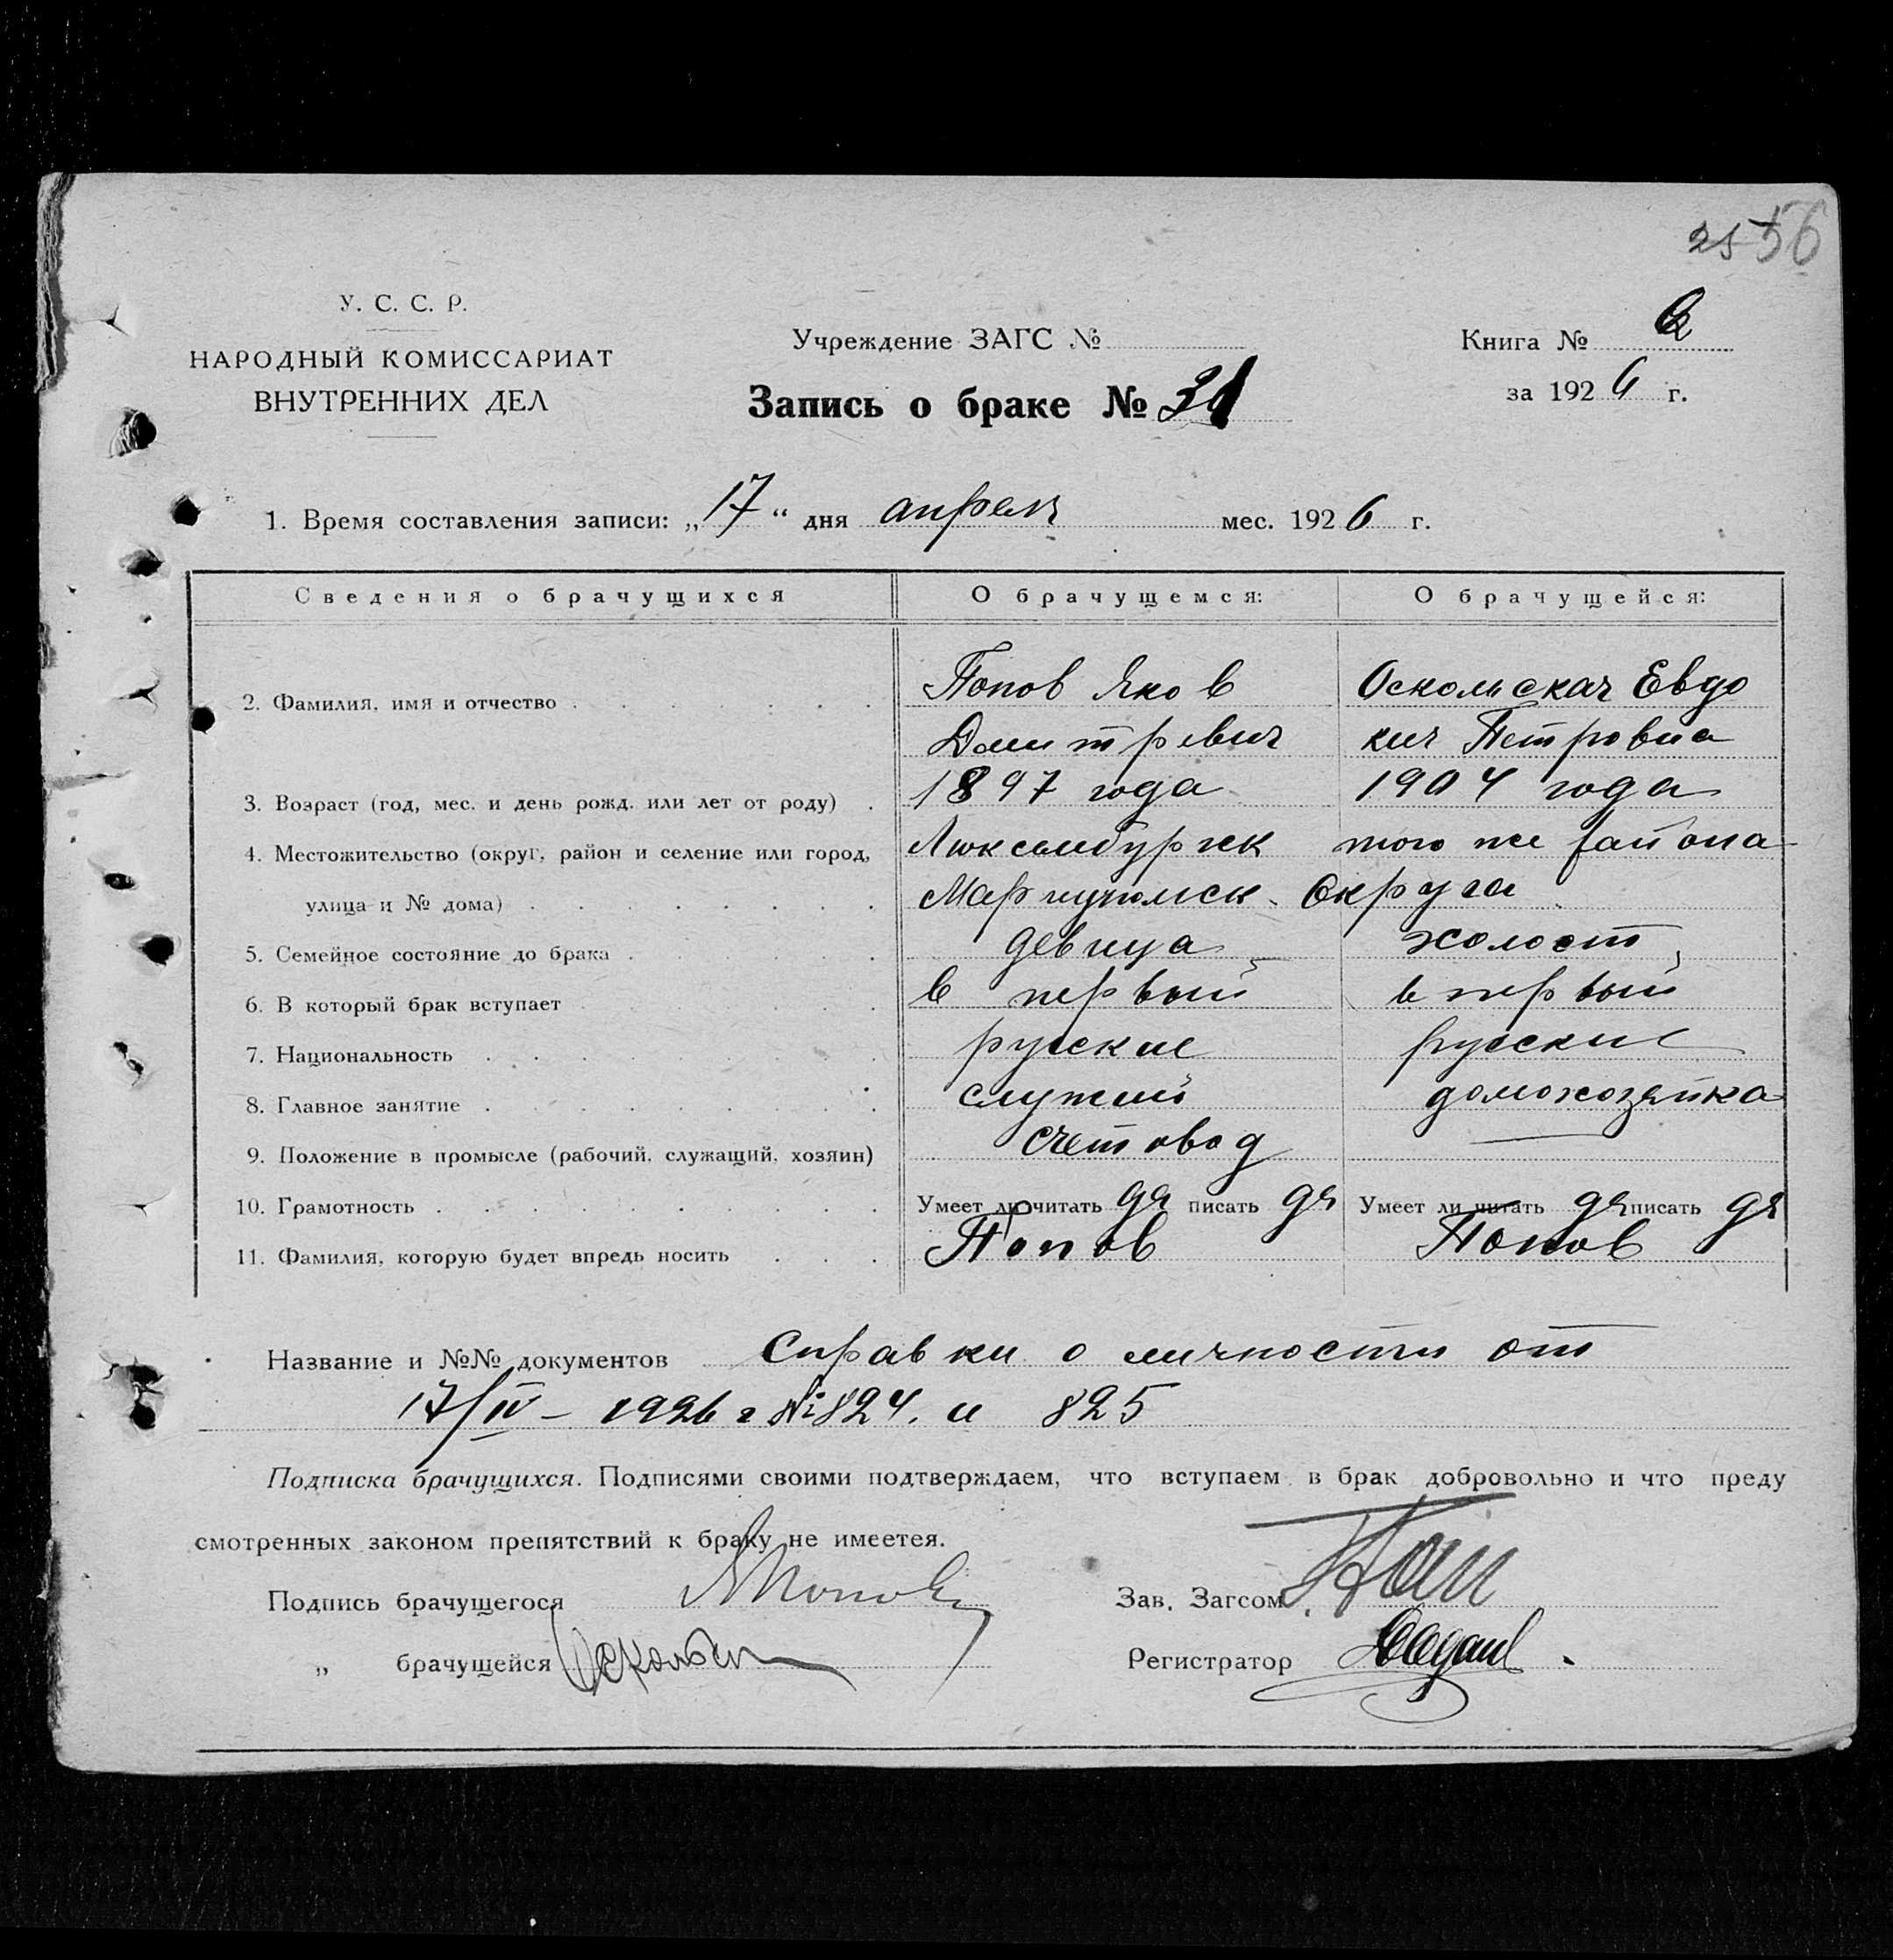 25 56
У. С. С. Р.
НАРОДНЫЙ КОМИССАРИАТ
ВНУТРЕННИХ ДЕЛ
Учреждение ЗАГС №
Запись о браке № 31
Книга №
за 1926 г.
1. Время составления записи: „17“ дня апреля мес. 1926 г.
Сведения о брачущихся О брачущемся: О брачущейся:
2. Фамилия, имя и отчество Попов Яков Оскольская Евдо
Дмитревич кия Петровна
3. Возраст (год, мес. и день рожд. или лет от роду) 1897 года 1904 года
4. Местожительство (округ, район и селение или город, Люксембургск того же района
улица и № дома) Мариупольск. Округа
5. Семейное состояние до брака девица холост
6. В который брак вступает в первый в первый
7. Национальность руские руские
8. Главное занятие служий домохозяйка
9. Положение в промысле (рабочий, служащий, хозяин) счетовод —
10. Грамотность Умеет ли читать да писать да Умеет ли читать да писать да
11. Фамилия, которую будет впредь носить Попов Попов
Название и №№ документов Справки о личности от
17/IV – 1926 г № 824. и 825
Подписка брачущихся. Подписями своими подтверждаем, что вступаем в брак добровольно и что преду
смотренных законом препятствий к браку не имеетея.
Подпись брачущегося ЯПопов Зав. Загсом
„ брачущейся Регистратор